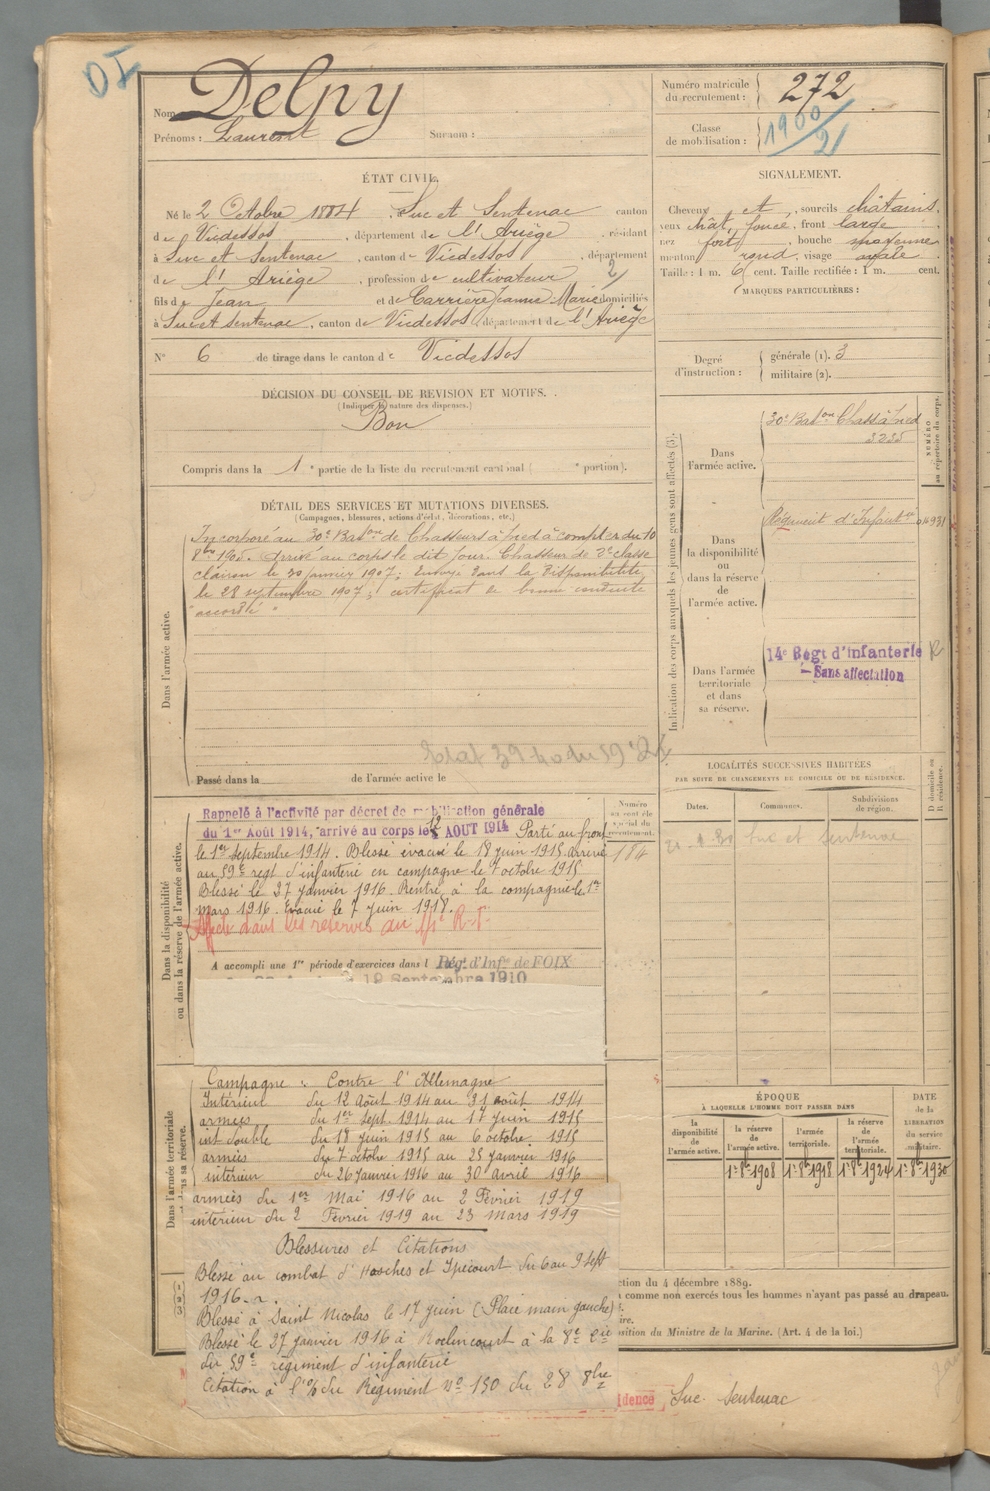 Nom Delpy
Prénoms : Laurent Surnom :
Numéro matricule du recrutement : 272
Classe de mobilisation : 1900/21
ÉTAT CIVIL.
Né le 2 Octobre 1884 Suc et Sentenac canton
de Vicdessos, département de l'Ariège, résidant
à Suc et Sentenac, canton de Vicdessos, département
de l'Ariège, profession de cultivateur 2/
fils de Jean et de Carrière Jeanne Marie domiciliés
à Suc et Sentenac, canton de Vicdessos, département de l'Ariège
N° 6 de tirage dans le canton de Vicdessos
SIGNALEMENT.
Cheveux et, sourcils châtains,
yeux chât. foncé, front large
nez fort, bouche moyenne
menton rond, visage ovale
Taille : 1 m. 6 cent. Taille rectifiée : 1 m. cent.
MARQUES PARTICULIÈRES :
Degré d'instruction : générale (1). 3
militaire (2).
DÉCISION DU CONSEIL DE REVISION ET MOTIFS.
(Indiquer la nature des dispenses.)
Bon
Compris dans la 1e partie de la liste du recrutement cantonal ( e portion).
DÉTAIL DES SERVICES ET MUTATIONS DIVERSES.
(Campagnes, blessures, actions d'éclat, décorations, etc.)
Dans l'armée active.
Incorporé au 30e Baton de Chasseurs à pied à compter du 10
8bre 1905. Arrivé au corps le dit jour. Chasseur de 2e classe
clairon le 30 janvier 1907; Envoyé dans la disponibilité
le 28 septembre 1907; certificat de bonne conduite
"accordé"
Passé dans la de l'armée active le
Indication des corps auxquels les jeunes gens sont affectés (3).
NUMÉRO au répertoire du corps.
Dans l'armée active.
30e Baton Chass à pied
3235
Dans la disponibilité ou dans la réserve de l'armée active.
Régiment d'Infanterie
Dans l'armée territoriale et dans sa réserve.
14e Régt d'infanterie
Sans affectation
LOCALITÉS SUCCESSIVES HABITÉES
PAR SUITE DE CHANGEMENTS DE DOMICILE OU DE RÉSIDENCE.
Dates. Communes. Subdivisions de région. D domicile ou R résidence.
Suc et Sentenac
Dans la disponibilité ou dans la réserve de l'armée active.
Rappelé à l'activité par décret de mobilisation générale
du 1er Août 1914, arrivé au corps le 12 AOUT 1914 Parti au front
le 1er Septembre 1914. Blessé évacué le 18 juin 1915. Arrivé
au 59e regt d'infanterie en campagne le 7 octobre 1915
Blessé le 27 janvier 1916. Rentré à la compagnie le 1er
mars 1916. Evacué le 7 juin 1918.
Affecté dans les réserves du R.I.
184
A accompli une 1re période d'exercices dans l Rég. d'Infie de FOIX
Septembre 1910
Dans l'armée territoriale et dans sa réserve.
Campagne : Contre l'Allemagne
Intérieur du 12 Août 1914 au 31 août 1914
armées du 1er Sept. 1914 au 17 juin 1915
int double du 18 juin 1915 au 6 octobre 1915
armées du 7 octobre 1915 au 25 janvier 1916
intérieur du 26 Janvier 1916 au 30 avril 1916
armées du 1er Mai 1916 au 2 Février 1919
intérieur du 2 Février 1919 au 23 Mars 1919
Blessures et Citations
Blessé au combat d'Hosches et Ipécourt du 6 au 9 Sept
1916
Blessé à Saint Nicolas le 17 juin (Place main gauche)
Blessé le 27 janvier 1916 à Roclincourt à la 8e Cie
du 59e régiment d'infanterie
Citation à l'o/o du Régiment No 150 du 28 8bre
ÉPOQUE
À LAQUELLE L'HOMME DOIT PASSER DANS
la disponibilité de l'armée active. la réserve de l'armée active. l'armée territoriale. la réserve de l'armée territoriale.
DATE de la LIBÉRATION du service militaire.
1er 8bre 1908 1er 8bre 1918 1er 8bre 1924 1er 8bre 1930
ction du 4 décembre 1889.
comme non exercés tous les hommes n'ayant pas passé au drapeau.
ire.
sition du Ministre de la Marine. (Art. 4 de la loi.)
idence Suc Sentenac